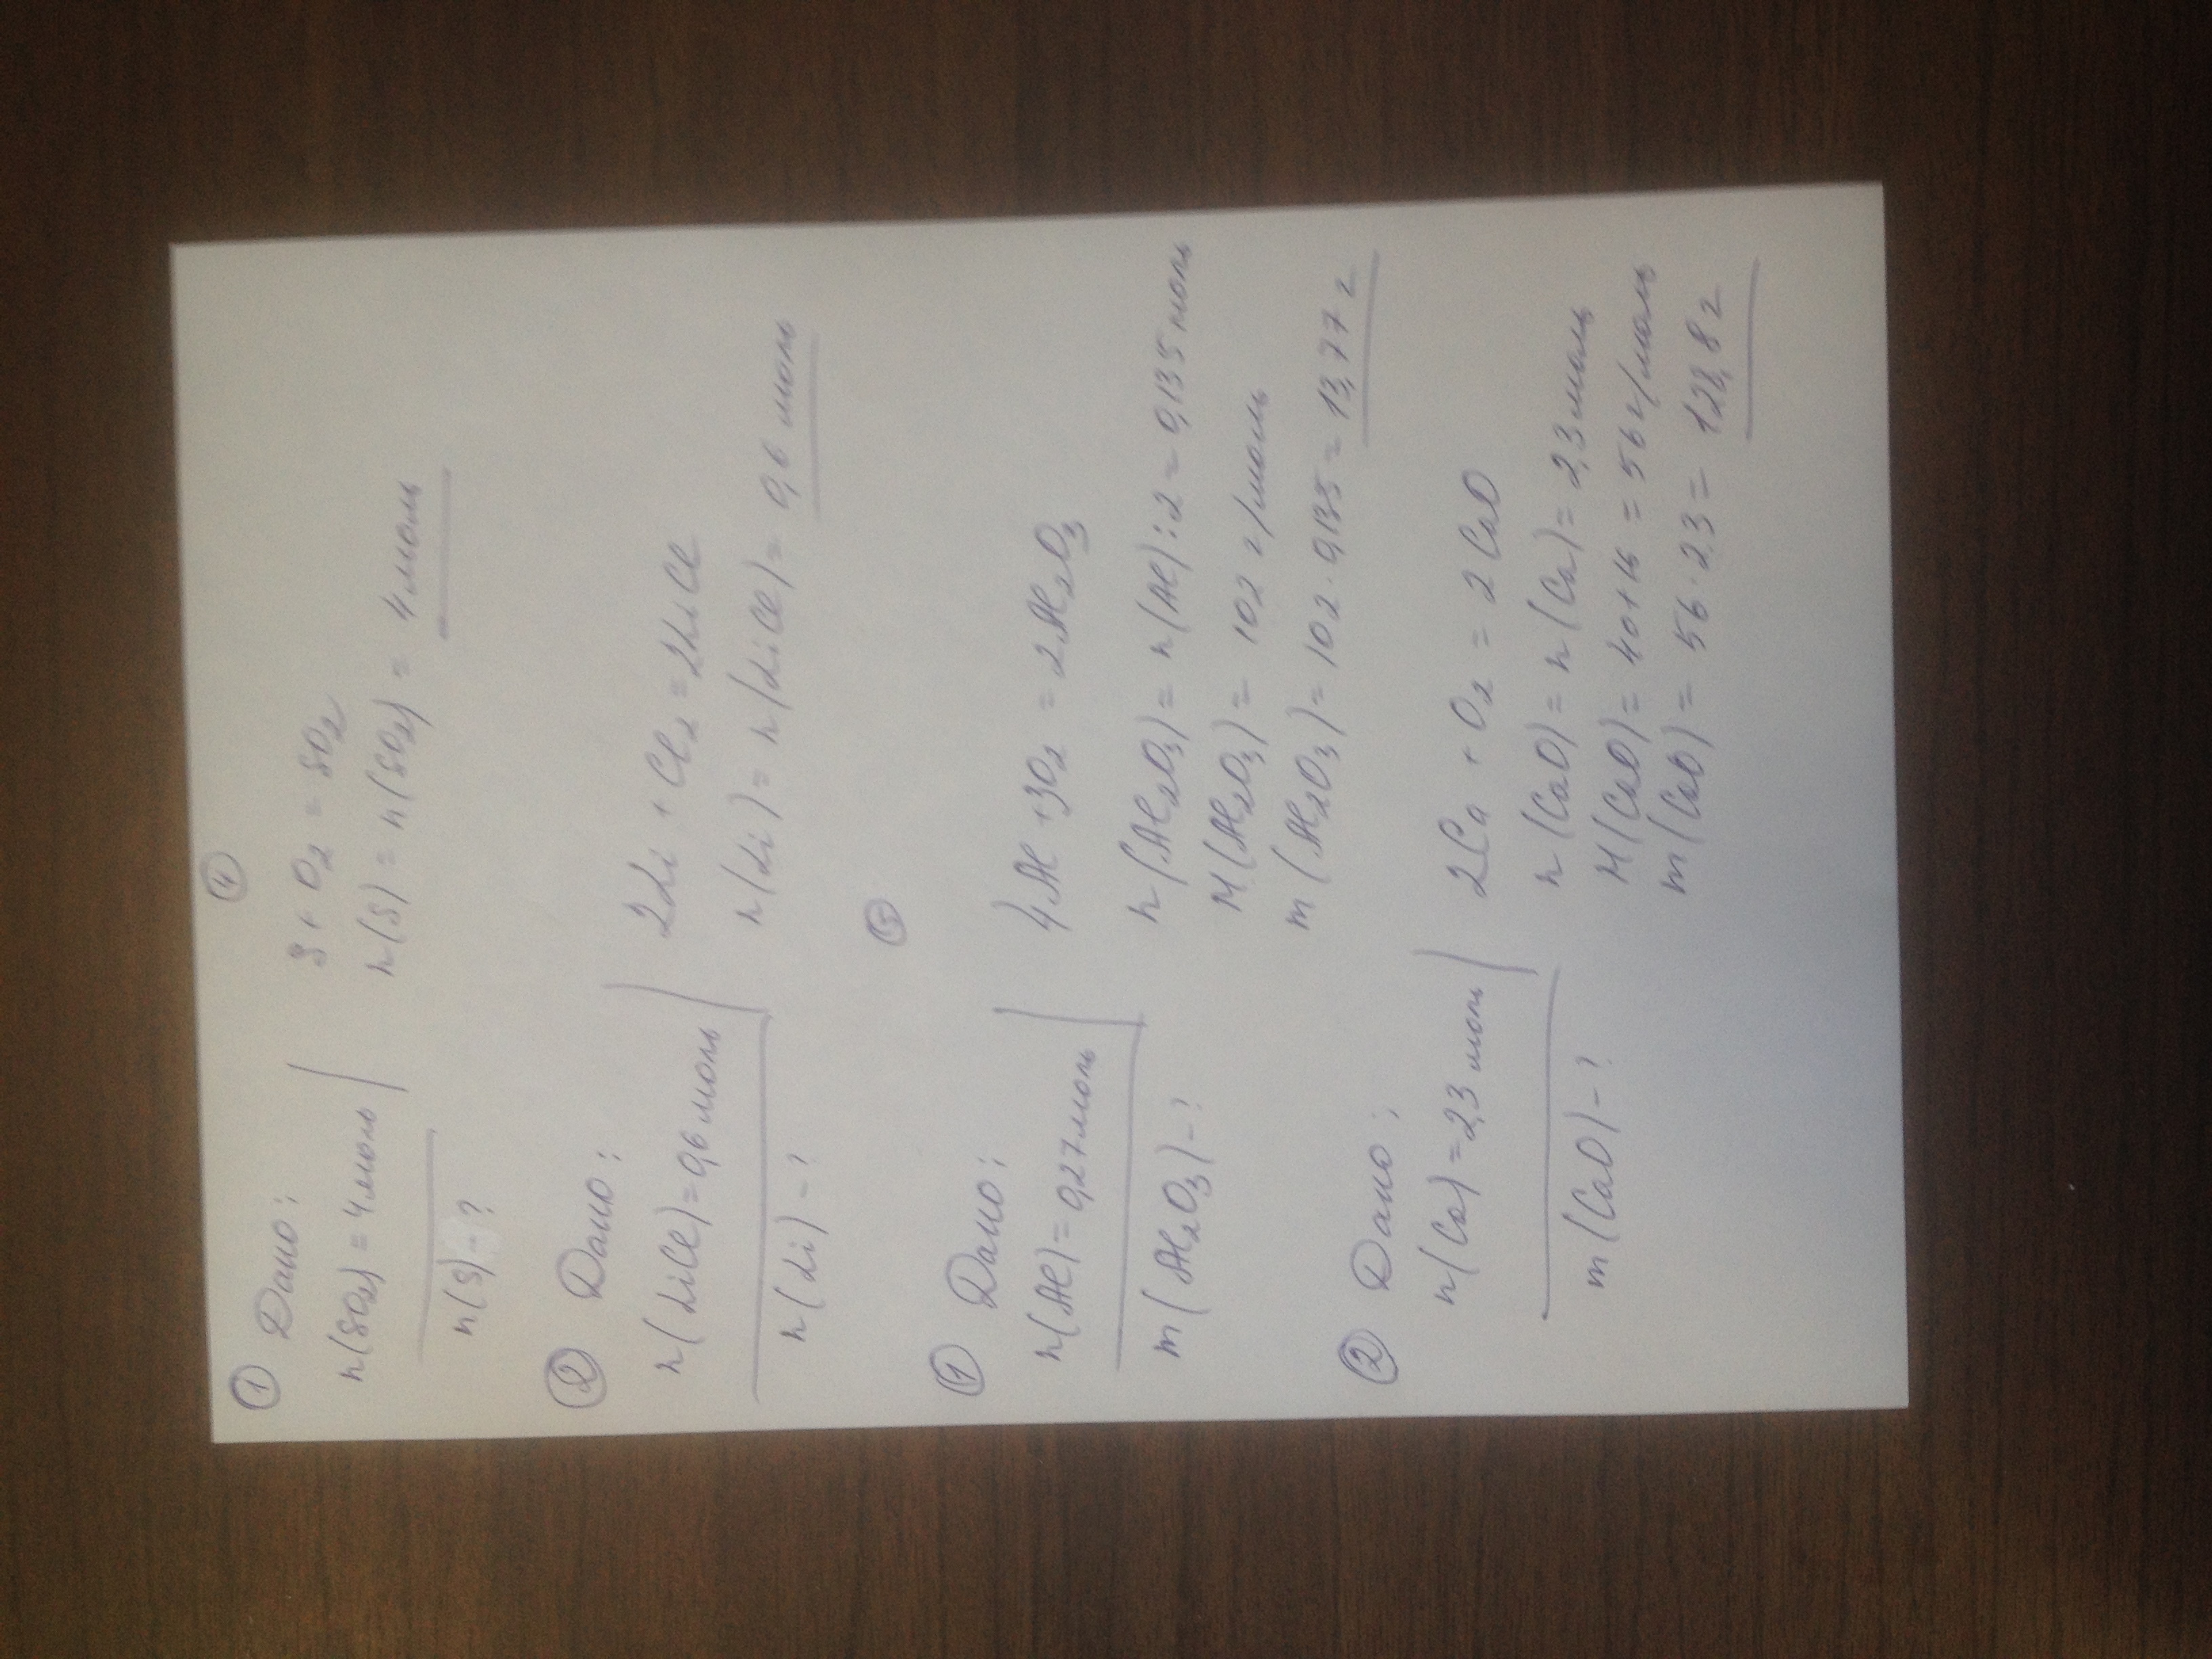 ④
① Дано:
n(SO₂) = 4 моль
n(S) - ?
S + O₂ = SO₂
n(S) = n(SO₂) = 4 моль
② Дано:
n(LiCl) = 0,6 моль
n(Li) - ?
2Li + Cl₂ = 2LiCl
n(Li) = n(LiCl) = 0,6 моль
⑤
① Дано:
n(Al) = 0,27 моль
m(Al₂O₃) - ?
4Al + 3O₂ = 2Al₂O₃
n(Al₂O₃) = n(Al) : 2 = 0,135 моль
M(Al₂O₃) = 102 г/моль
m(Al₂O₃) = 102 · 0,135 = 13,77 г
② Дано:
n(Ca) = 2,3 моль
m(CaO) - ?
2Ca + O₂ = 2CaO
n(CaO) = n(Ca) = 2,3 моль
M(CaO) = 40 + 16 = 56 г/моль
m(CaO) = 56 · 2,3 = 128,8 г